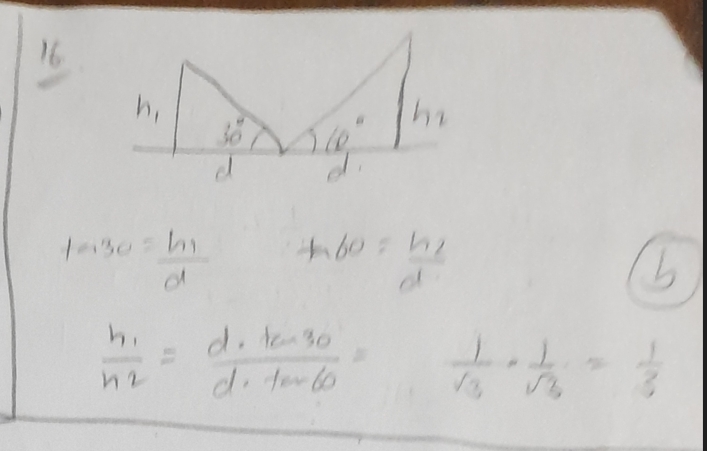 16
h₁ 30° 60° h₂
d d.
tan30 = h₁/d tan60 = h₂/d
b
h₁/h2 = d. tan30/d. tan60 = 1/√3 . 1/√3 = 1/3